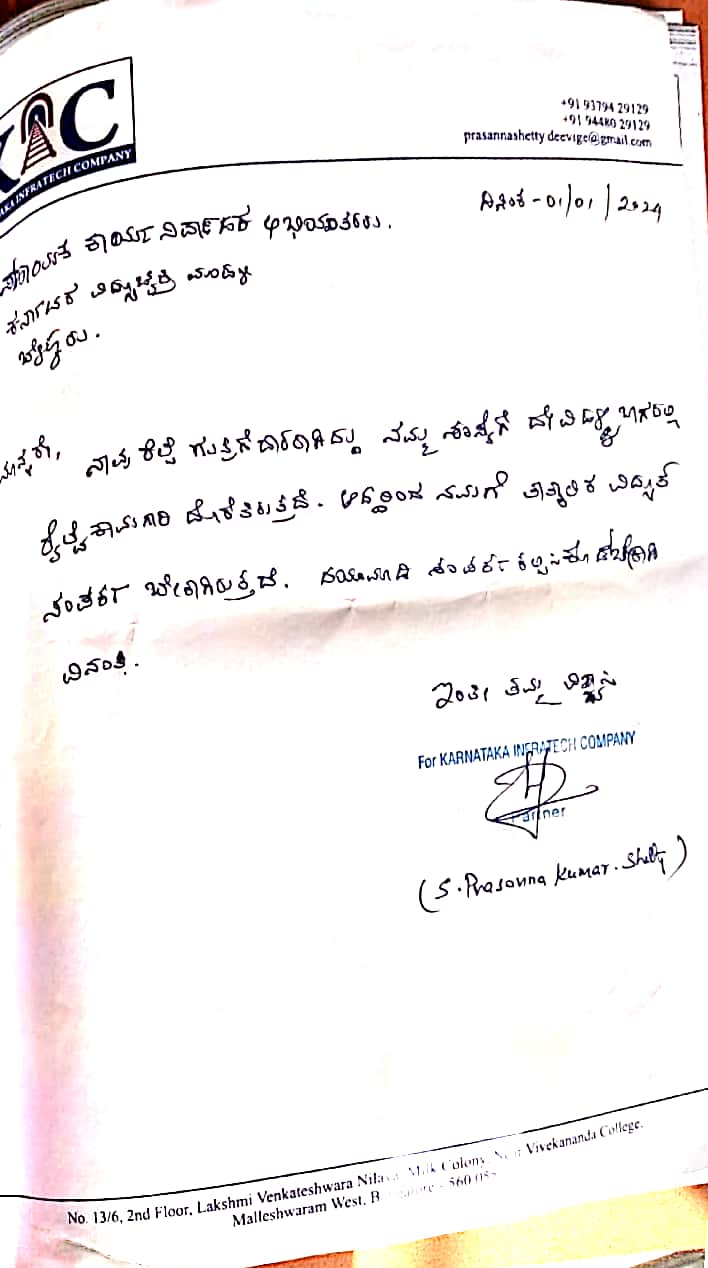 AC
KA INFRATECH COMPANY
+91 93794 29129
+91 94480 29129
prasannashetty deevige@gmail.com
ದಿನಾಂಕ - 01/01/2024
ಸಹಾಯಕ ಕಾರ್ಯ ನಿರ್ವಾಹಕ ಅಭಿಯಂತರರು.
ಕರ್ನಾಟಕ ವಿದ್ಯುಚ್ಛಕ್ತಿ ಮಂಡಳಿ
ಮಾನ್ಯರೇ,
ನಾವು ರೈಲ್ವೆ ಗುತ್ತಿಗೆದಾರರಾಗಿದ್ದು ನಮ್ಮ ಸಂಸ್ಥೆಗೆ
ರೈಲ್ವೆ ಕಾಮಗಾರಿ ದೊರೆತಿರುತ್ತದೆ. ಆದ್ದರಿಂದ ನಮಗೆ ತಾತ್ಕಾಲಿಕ ವಿದ್ಯುತ್
ಸಂಪರ್ಕ ಬೇಕಾಗಿರುತ್ತದೆ. ದಯಮಾಡಿ ಸಂಪರ್ಕ ಕಲ್ಪಿಸಿಕೊಡಬೇಕಾಗಿ
ವಿನಂತಿ.
ಇಂತಿ ತಮ್ಮ ವಿಶ್ವಾಸಿ
For KARNATAKA INFRATECH COMPANY
Partner
(S. Prasanna Kumar. Shetty)
No. 13/6, 2nd Floor, Lakshmi Venkateshwara Nilaya, Milk Colony, Near Vivekananda College,
Malleshwaram West,